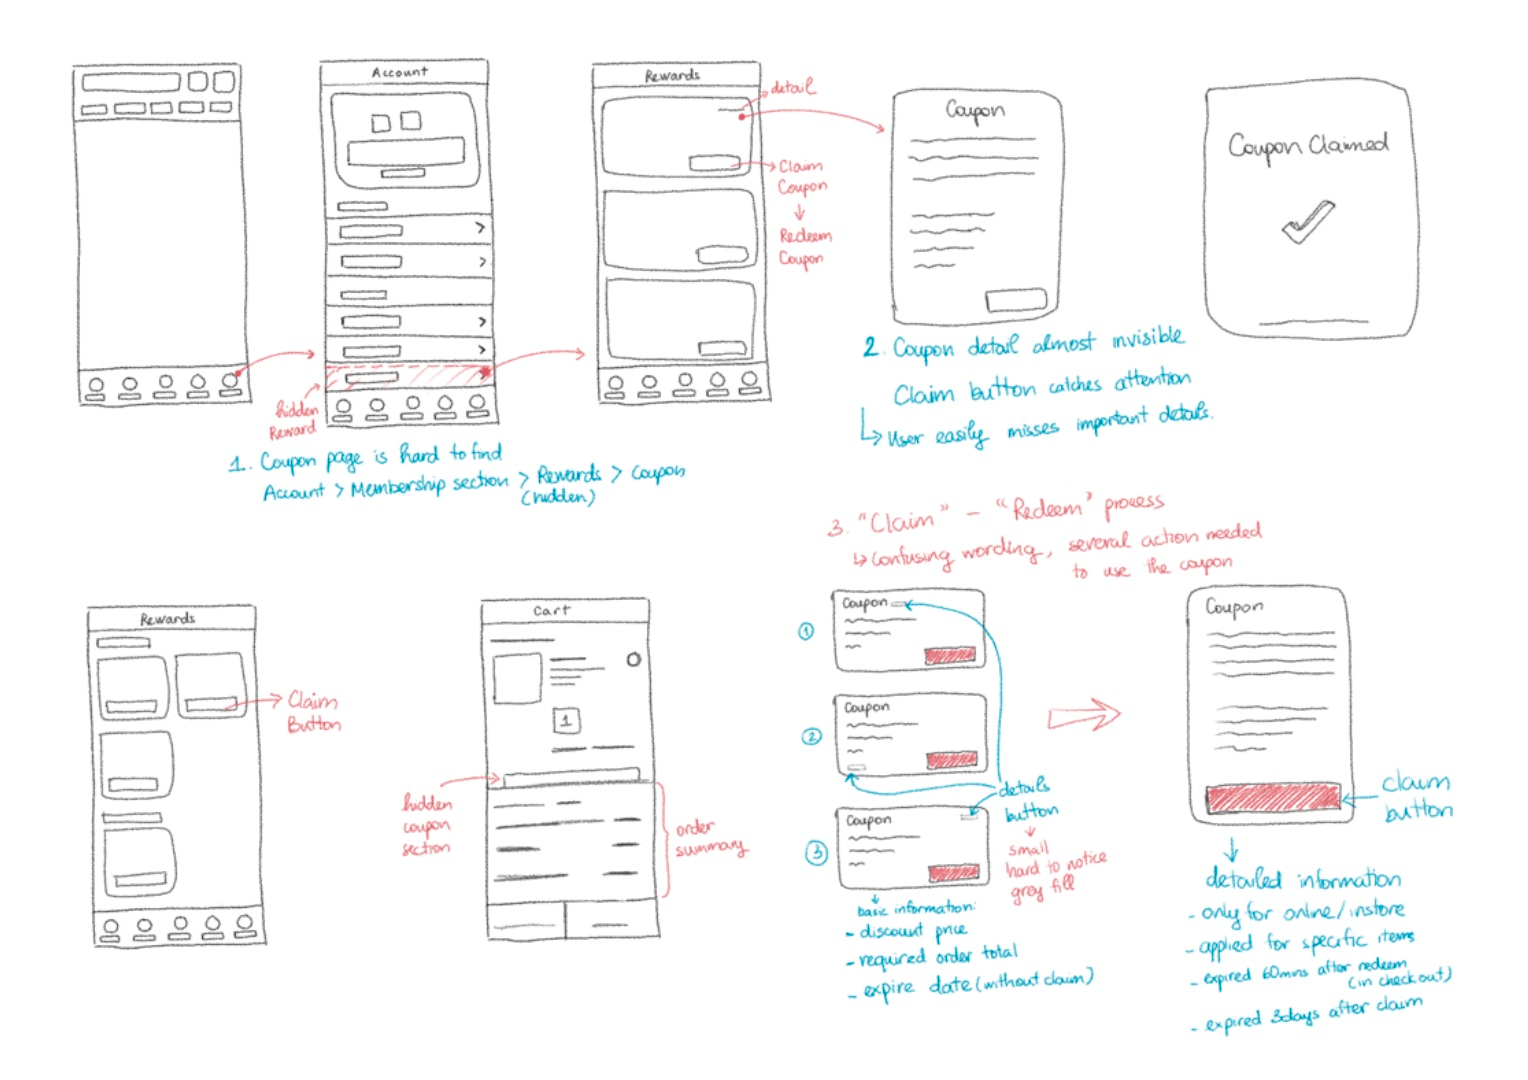 Account
Rewards
detail
Claim
Coupon
Redeem
Coupon
Coupon
Coupon Claimed
hidden
Reward
1. Coupon page is hard to find
Account > Membership section > Rewards > Coupon
(hidden)
2. Coupon detail almost invisible
Claim button catches attention
User easily misses important details.
3. "Claim" - "Redeem" process
Confusing wording, several action needed
to use the coupon
Rewards
Claim
Button
Cart
1
hidden
coupon
section
order
summary
1
Coupon
2
Coupon
3
Coupon
details
button
small
hard to notice
grey fill
basic information:
- discount price
- required order total
- expire date (without claim)
Coupon
claim
button
detailed information
- only for online/instore
- applied for specific items
- expired 60mins after redeem
(in checkout)
- expired 3days after claim